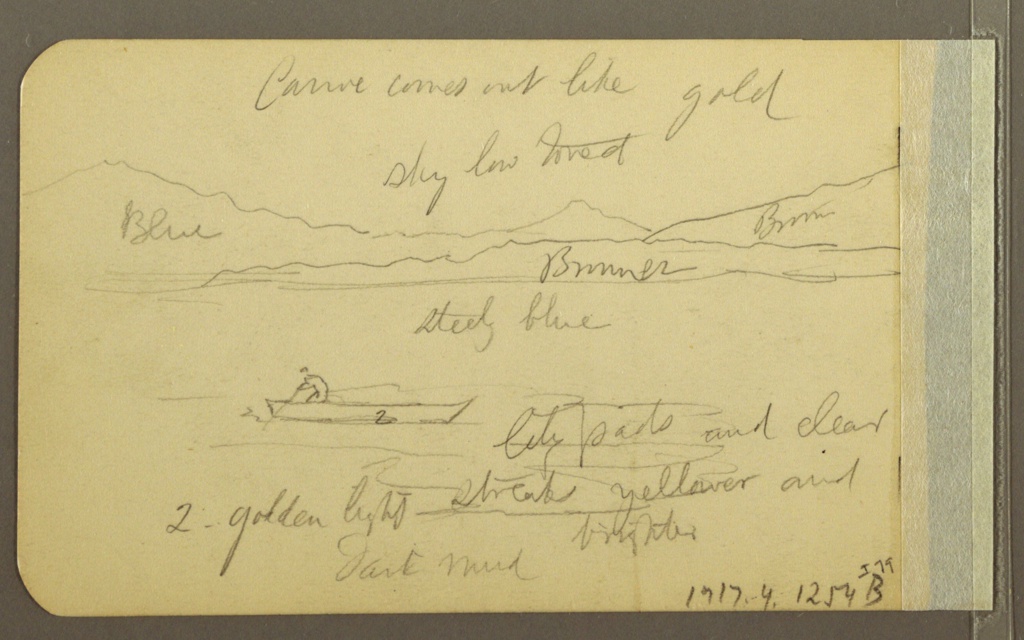 Canoe comes out like gold
sky low toned
Blue
Brown
Browner
steely blue
2
lily pads and clear
streaks yellower and
brighter
2 - golden light
Dark mud
I 79
1917-4-1254 B